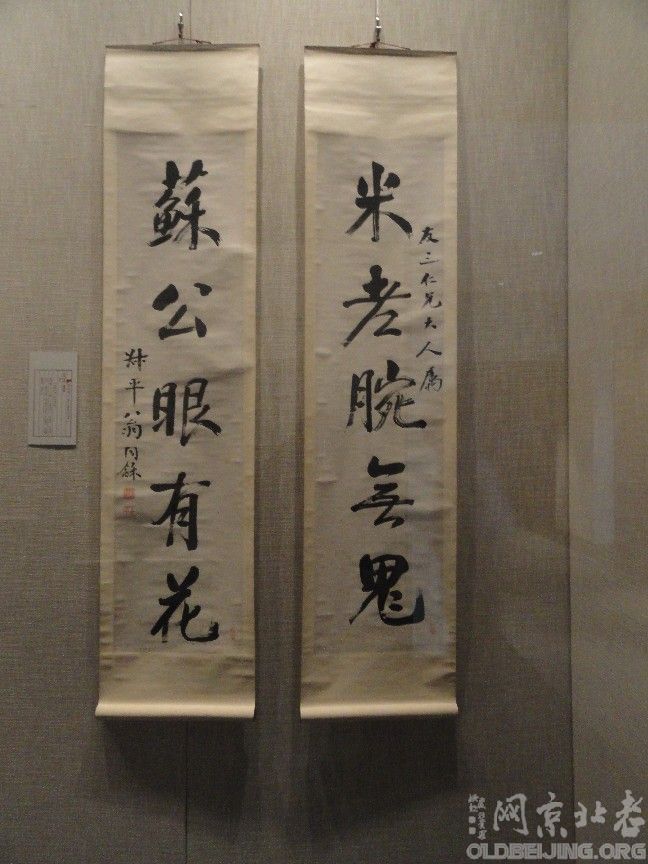 米老腕無鬼
友三仁兄大人属
蘇公眼有花
叔平翁同龢
老北京网
OLDBEIJING.ORG